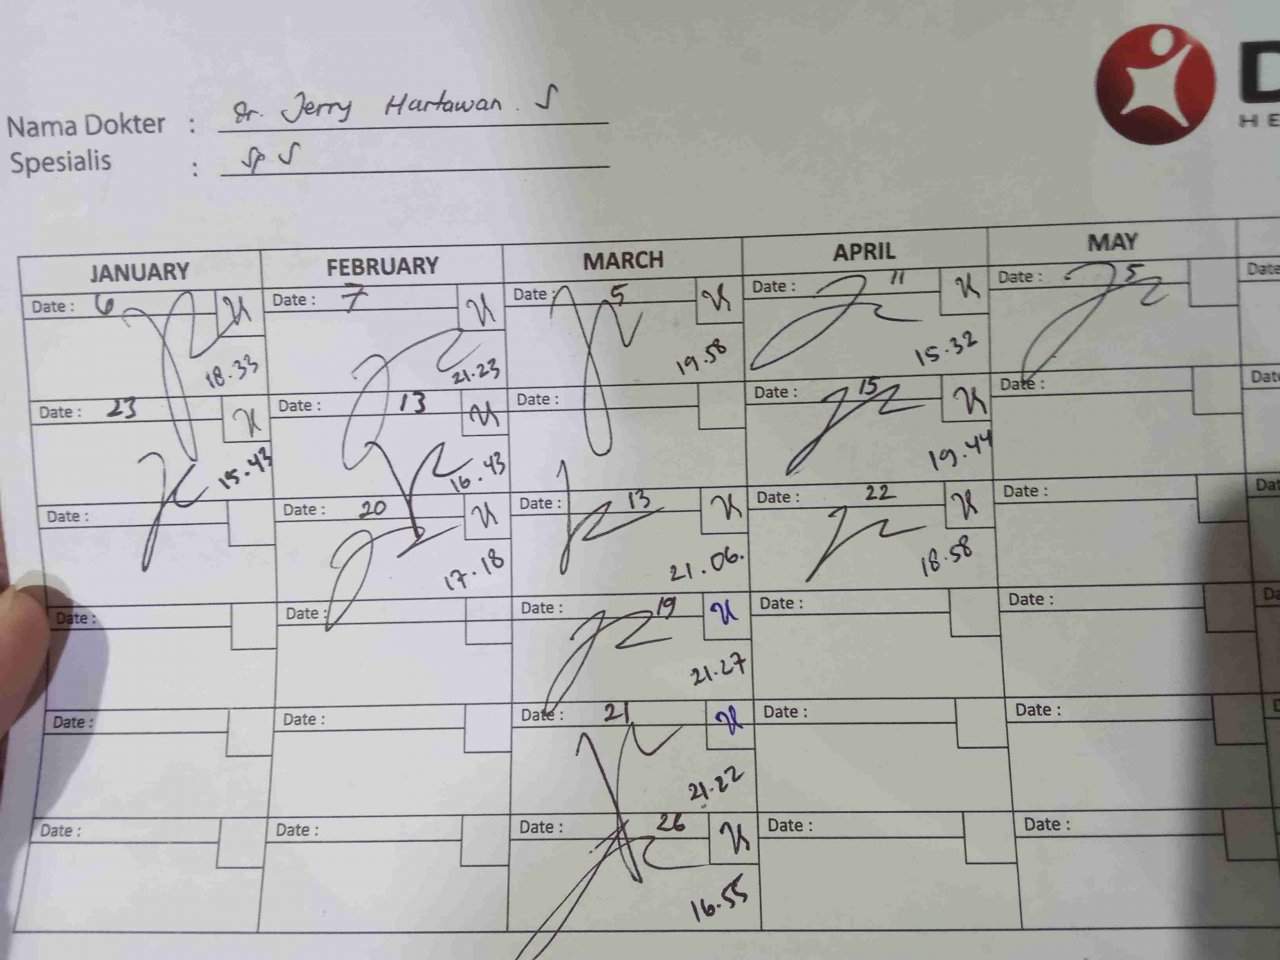 Nama Dokter : Dr. Jerry Hartawan. S
Spesialis : Sp S
D
HE
JANUARY FEBRUARY MARCH APRIL MAY
Date : 6 Date : 7 Date : 5 Date : 11 Date : 5 Date
18.33 21.23 19.58 15.32
Date : 23 Date : 13 Date : Date : 15 Date : Date
15.43 16.43 19.44
Date : Date : 20 Date : 13 Date : 22 Date : Dat
17.18 21.06. 18.58
Date : Date : Date : 19 Date : Date : Da
21.27
Date : Date : Date : 21 Date : Date : D
21.22
Date : Date : Date : 26 Date : Date :
16.55